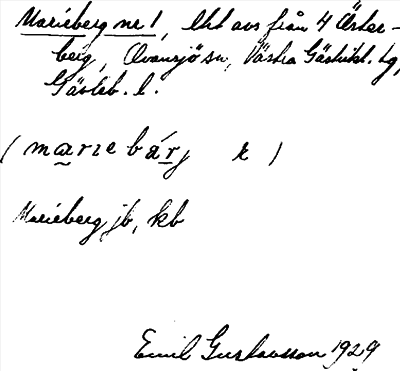 Marieberg nr 1, lht avs från 4 Öster-
berg, Ovansjö sn, Västra Gästrikl. tg,
Gävleb. l.
(marɪebárj k)
Marieberg jb, kb
Emil Gustavsson 1929